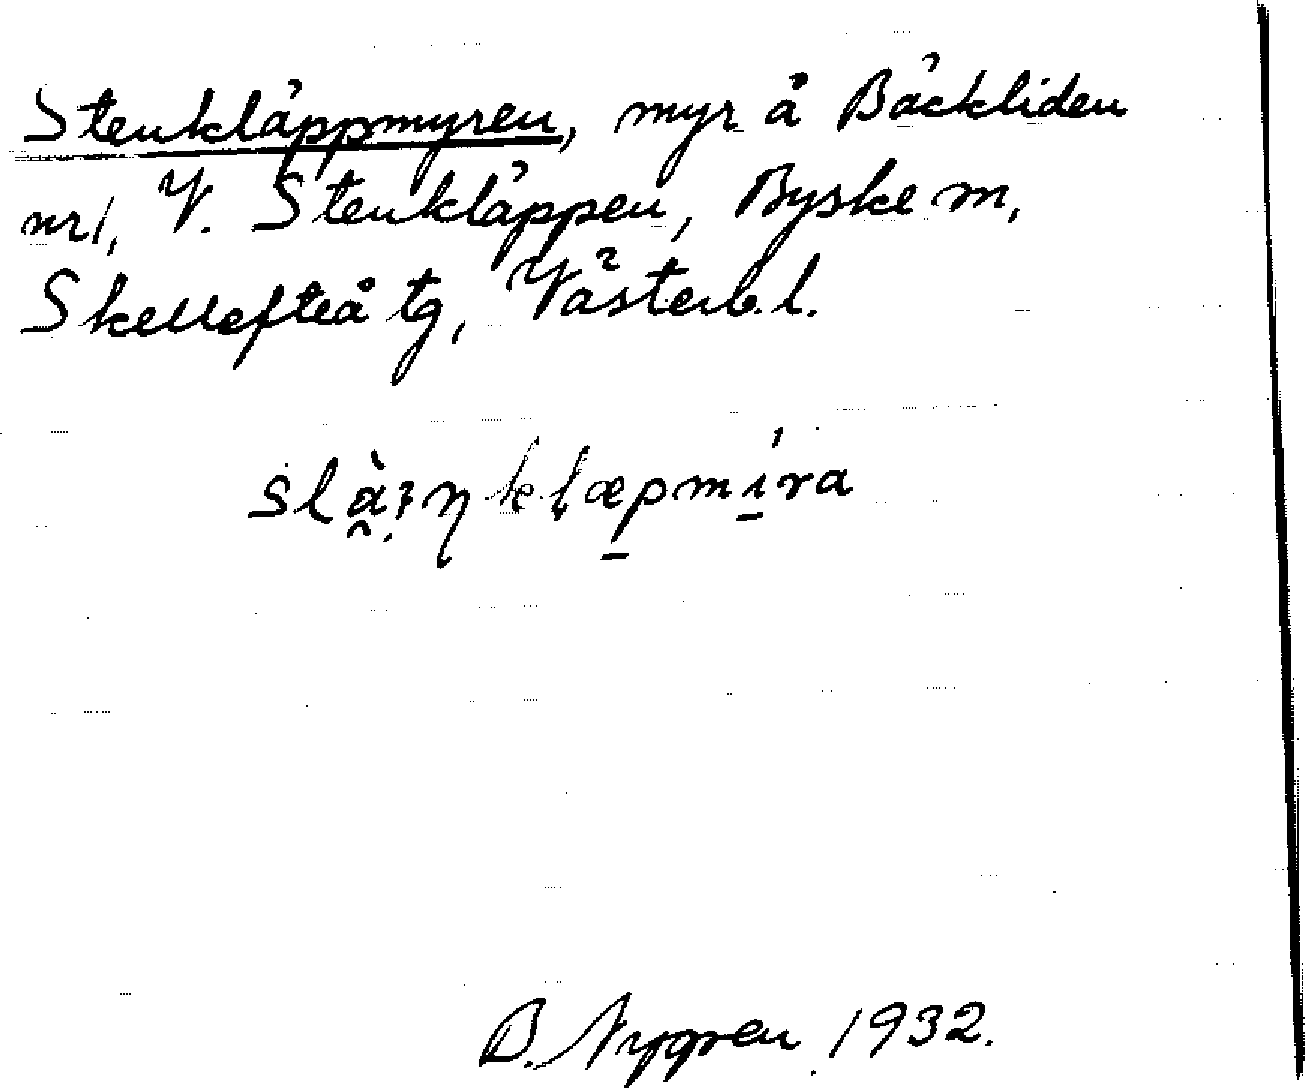 Stenkläppmyren, myr å Bäckliden
nr 1, V. Stenkläppen, Byske sn,
Skellefteå tg, Västerb. l.
B. Nygren 1932.